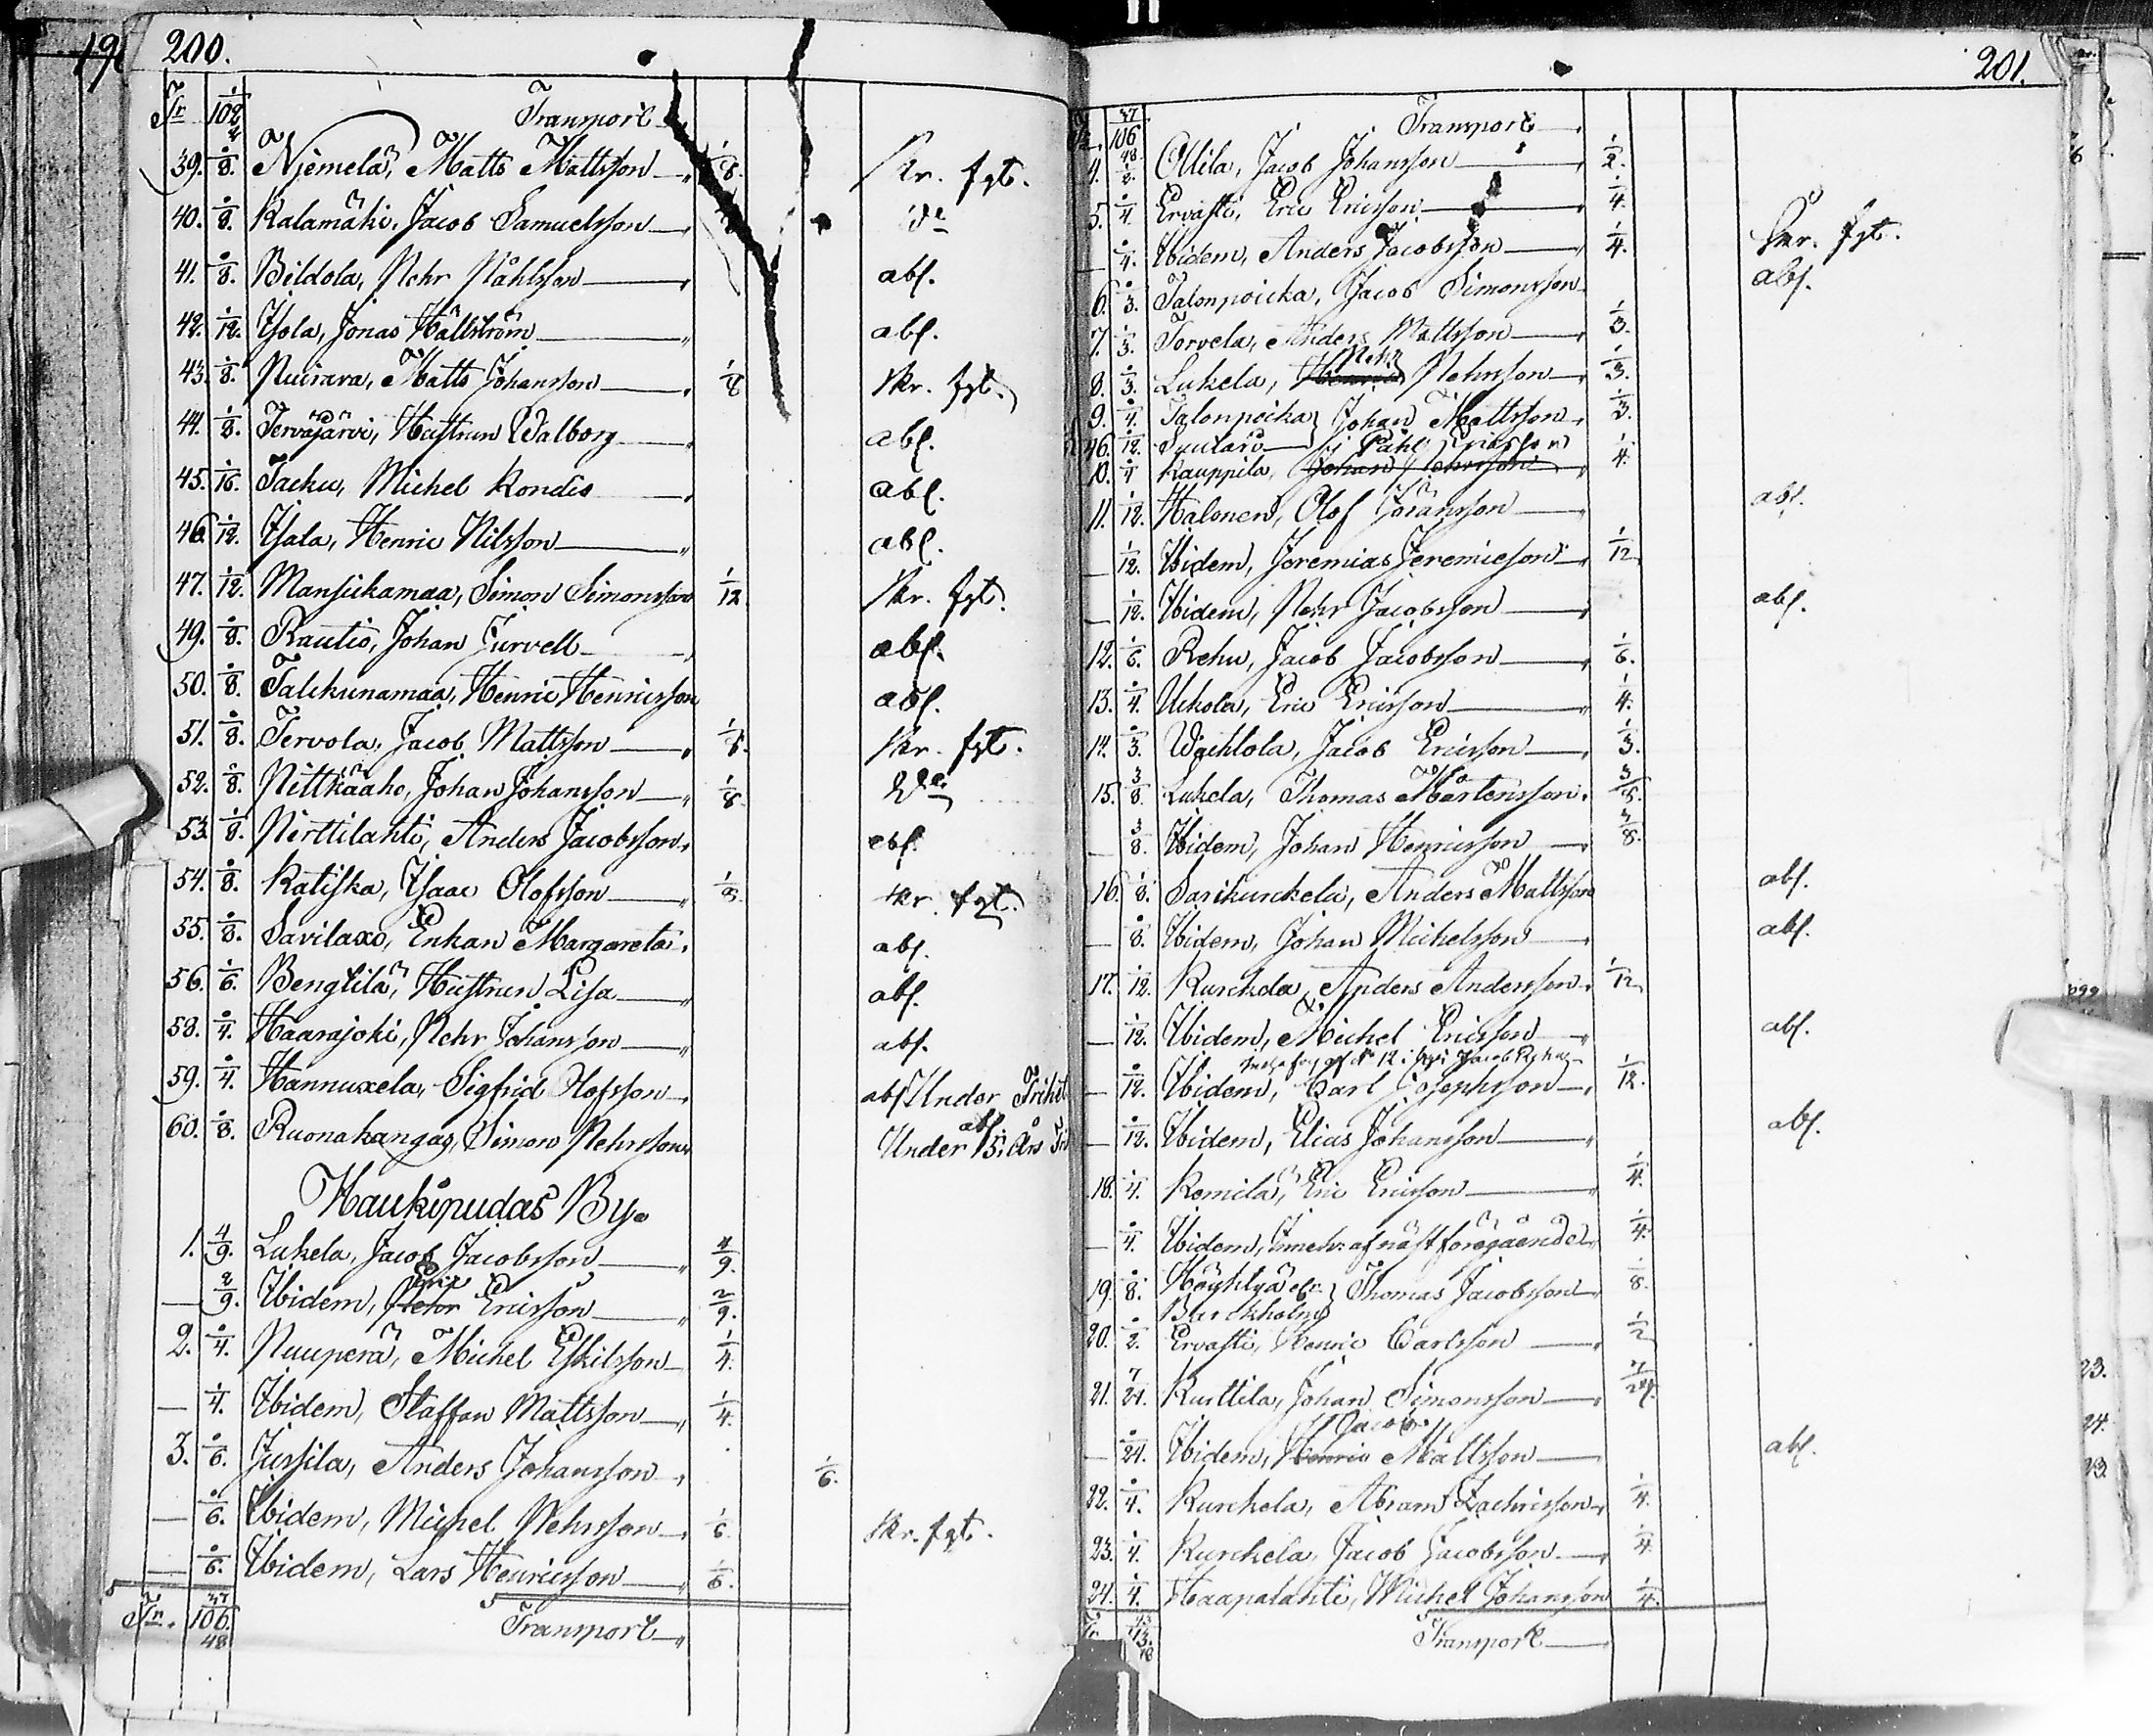 190
200.
Tr. 102 1/4 Transport
39. 1/8. Niemelä, Matts Mattsson 1/8. Skr. fgt.
40. 1/8. Kalamäki, Jacob Samuelsson D:o
41. 1/8. Bildola, Pehr Påhlsson abs.
42. 1/12. Ysola, Jonas Hällström abs.
43. 1/8. Puirava, Matts Johansson 1/8 Skr. fgt.
44. 1/8. Tervajärvi, Hustrun Walborg abs.
45. 1/16. Jacku, Michel Kondis abs.
46. 1/12. Ysala, Henric Nilsson abs.
47. 1/12. Mansickamaa, Simon Simonsson 1/12 Skr. fgt.
49. 1/8. Rautio, Johan Jurvell abs.
50. 1/8. Talckunamaa, Henric Henricsson abs.
51. 1/8. Tervola, Jacob Mattsson 1/8. Skr. fgt.
52. 1/8. Pittkäaho, Johan Johansson 1/8 D:o
53. 1/8. Pirttilahti, Anders Jacobsson abs.
54. 1/8. Katiska, Isaac Olofsson 1/8. Skr. fgt.
55. 1/8. Savilaxo, Enkan Margareta abs.
56. 1/6. Bengtilä, Hustrun Lisa abs.
58. 1/4. Haarajoki, Pehr Johansson abs.
59. 1/4. Hannuxela, Sigfrid Olofsson abs. Under Frihet
60. 1/8. Ruonakangas, Simon Pehrsson abs. Under 15. års Fri
Haukipudas By.
1. 4/9. Lukela, Jacob Jacobsson 4/9.
— 2/9. Ibidem, Pehr Eric Ericsson 2/9.
2. 1/4. Nuuperä, Michel Eskilsson 1/4.
— 1/4. Ibidem, Staffan Mattsson 1/4.
3. 1/6. Jussila, Anders Johansson 1/6.
— 1/6. Ibidem, Michel Pehrsson 1/6. Skr. fgt.
— 1/6. Ibidem, Lars Henricsson 1/6.
Tr. 106 37/48 Transport
201.
Tr. 106 37/48 Transport
4. 1/2. Ollila, Jacob Johansson 1/2.
5. 1/4. Ervasti, Eric Ericsson 1/4.
— 1/4. Ibidem, Anders Jacobsson 1/4. Skr. fgt.
6. 1/3. Talonpoicka, Jacob Simonsson abs.
7. 1/3. Torvela, Anders Mattsson 1/3.
8. 1/3. Lukela, Henric Pehr Pehrsson 1/3.
9. 1/4. Talonpoicka Johan Mattsson 1/3.
46. 1/12. Syutaro
10. 1/4 Kauppila, Johan Pehrsson Påhl Ericsson 1/4.
11. 1/12. Halonen, Olof Göransson abs.
— 1/12. Ibidem, Jeremias Jeremieson 1/12
— 1/12. Ibidem, Pehr Jacobsson abs.
12. 1/6. Rehu, Jacob Jacobsson 1/6.
13. 1/4. Uckola, Eric Ericsson 1/4.
14. 1/3. Wachtola, Jacob Ericsson 1/3.
15. 3/8. Lukela, Thomas Mårtensson 3/8.
— 3/8. Ibidem, Johan Henricsson 3/8.
16. 1/8. Sarikurckela, Anders Mattsson abs.
— 1/8. Ibidem, Johan Michelsson abs.
17. 1/12. Kurckela, Anders Andersson 1/12
— 1/12. Ibidem, Michel Ericsson abs.
— 1/12. Ibidem, Carl Josephsson 1/12.
— 1/12. Ibidem, Elias Johansson abs.
18. 1/4. Komila, Eric Ericsson 1/4.
— 1/4. Ibidem, Inneh: af näst föregående 1/4.
19. 1/8. Höyhtyä el: Barckholm Thomas Jacobsson 1/8.
20. 1/2. Ervasti, Henric Carlsson 1/2
21. 7/24. Kurttila, Johan Simonsson 7/24.
— 1/24. Ibidem, Henric Jacob Mattsson abs.
22. 1/4. Kurckela, Abram Zachrisson 1/4.
23. 1/4. Kurckela, Jacob Jacobsson 1/4
24. 1/4. Haapalahti, Michel Johansson 1/4.
Tr. 113. Transport
23.
24.
23.